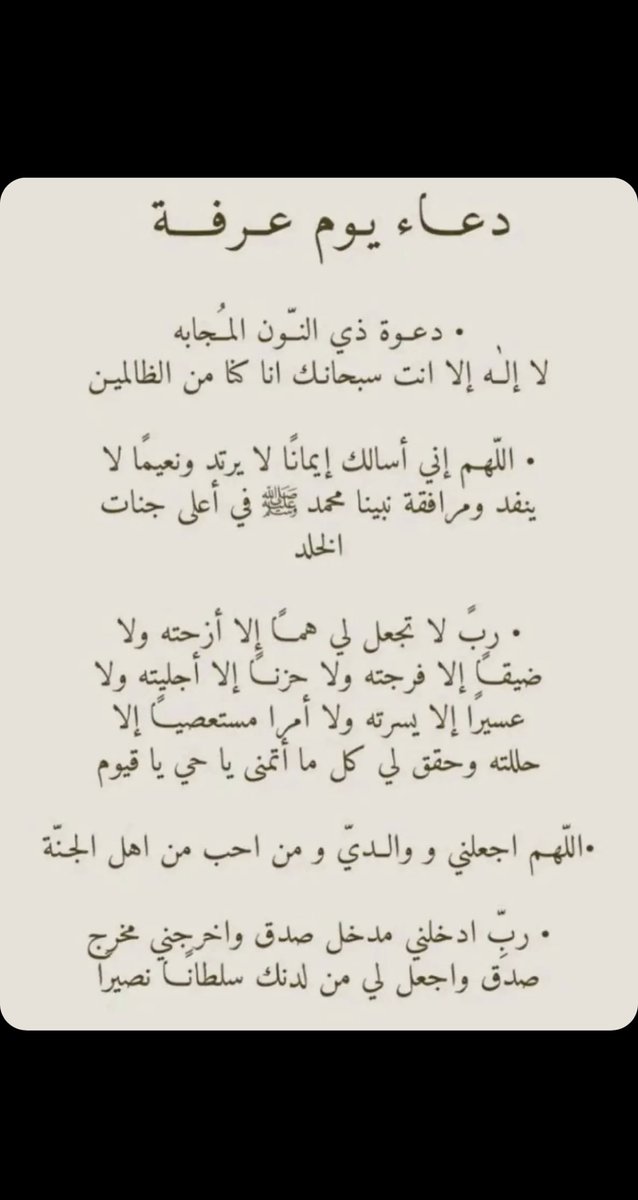 دعـــاء يـوم عـرفـــة
• دعـوة ذي النـّون المـُجابه
لا إلـٰـه إلا انت سبحانـك انا كنا من الظالميـن
• اللّهـم إني أسالك إيمانًا لا يرتد ونعيمًا لا
ينفد ومرافقة نبينا محمد ﷺ في أعلى جنات
الخلد
• ربً لا تجعل لي همـًا إلا أزحته ولا
ضيقـًا إلا فرجته ولا حزنـًا إلا أجليته ولا
عسيرًا إلا يسرته ولا أمرا مستعصيـًا إلا
حللته وحقق لي كل ما أتمنى يا حي يا قيوم
•اللّهـم اجعلني و والـديّ و من احب من اهل الجنّة
• ربِّ ادخلني مدخل صدق واخرجني مخرج
صدق واجعل لي من لدنك سلطانـًا نصيرًا